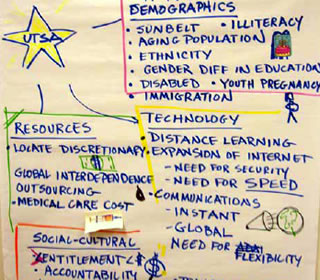 DEMOGRAPHICS
UTSA
• SUNBELT • ILLITERACY
• AGING POPULATION
• ETHNICITY
• GENDER DIFF IN EDUCATION
• DISABLED • YOUTH PREGNANCY
• IMMIGRATION
RESOURCES
• LOCATE DISCRETIONARY
GLOBAL INTERDEPENDENCE
OUTSOURCING
• MEDICAL CARE COST
TECHNOLOGY
• DISTANCE LEARNING
• EXPANSION OF INTERNET
- NEED FOR SECURITY
- NEED FOR SPEED
• COMMUNICATIONS
- INSTANT
- GLOBAL
NEED FOR FLEXIBILITY
SOCIAL-CULTURAL
ENTITLEMENT $
• ACCOUNTABILITY $